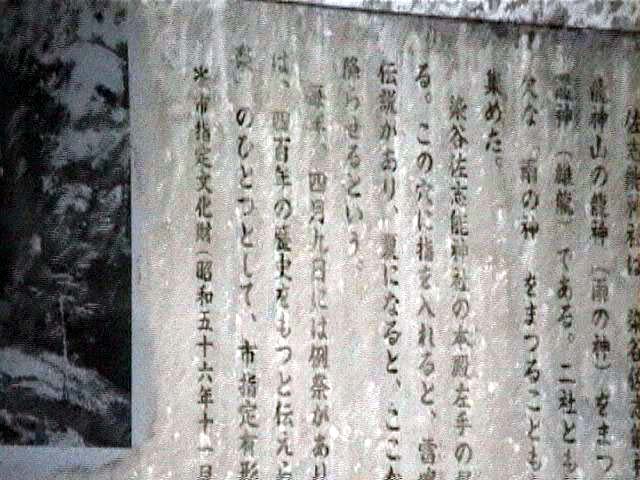 佐志能神社は 染谷佐志能
龍神山の龍神(雨の神)をまつ
龍神(雌龍)である。二社とも
欠な 雨の神 をまつることも
集めた。
染谷佐志能神社の本殿左手の
る。この穴に指を入れると、雷鳴
伝説があり、夏になると、ここか
降らせるという。
四月九日には例祭があり
は、四百年の歴史をもつと伝え
のひとつとして、市指定有形
※市指定文化財(昭和五十六年十一月